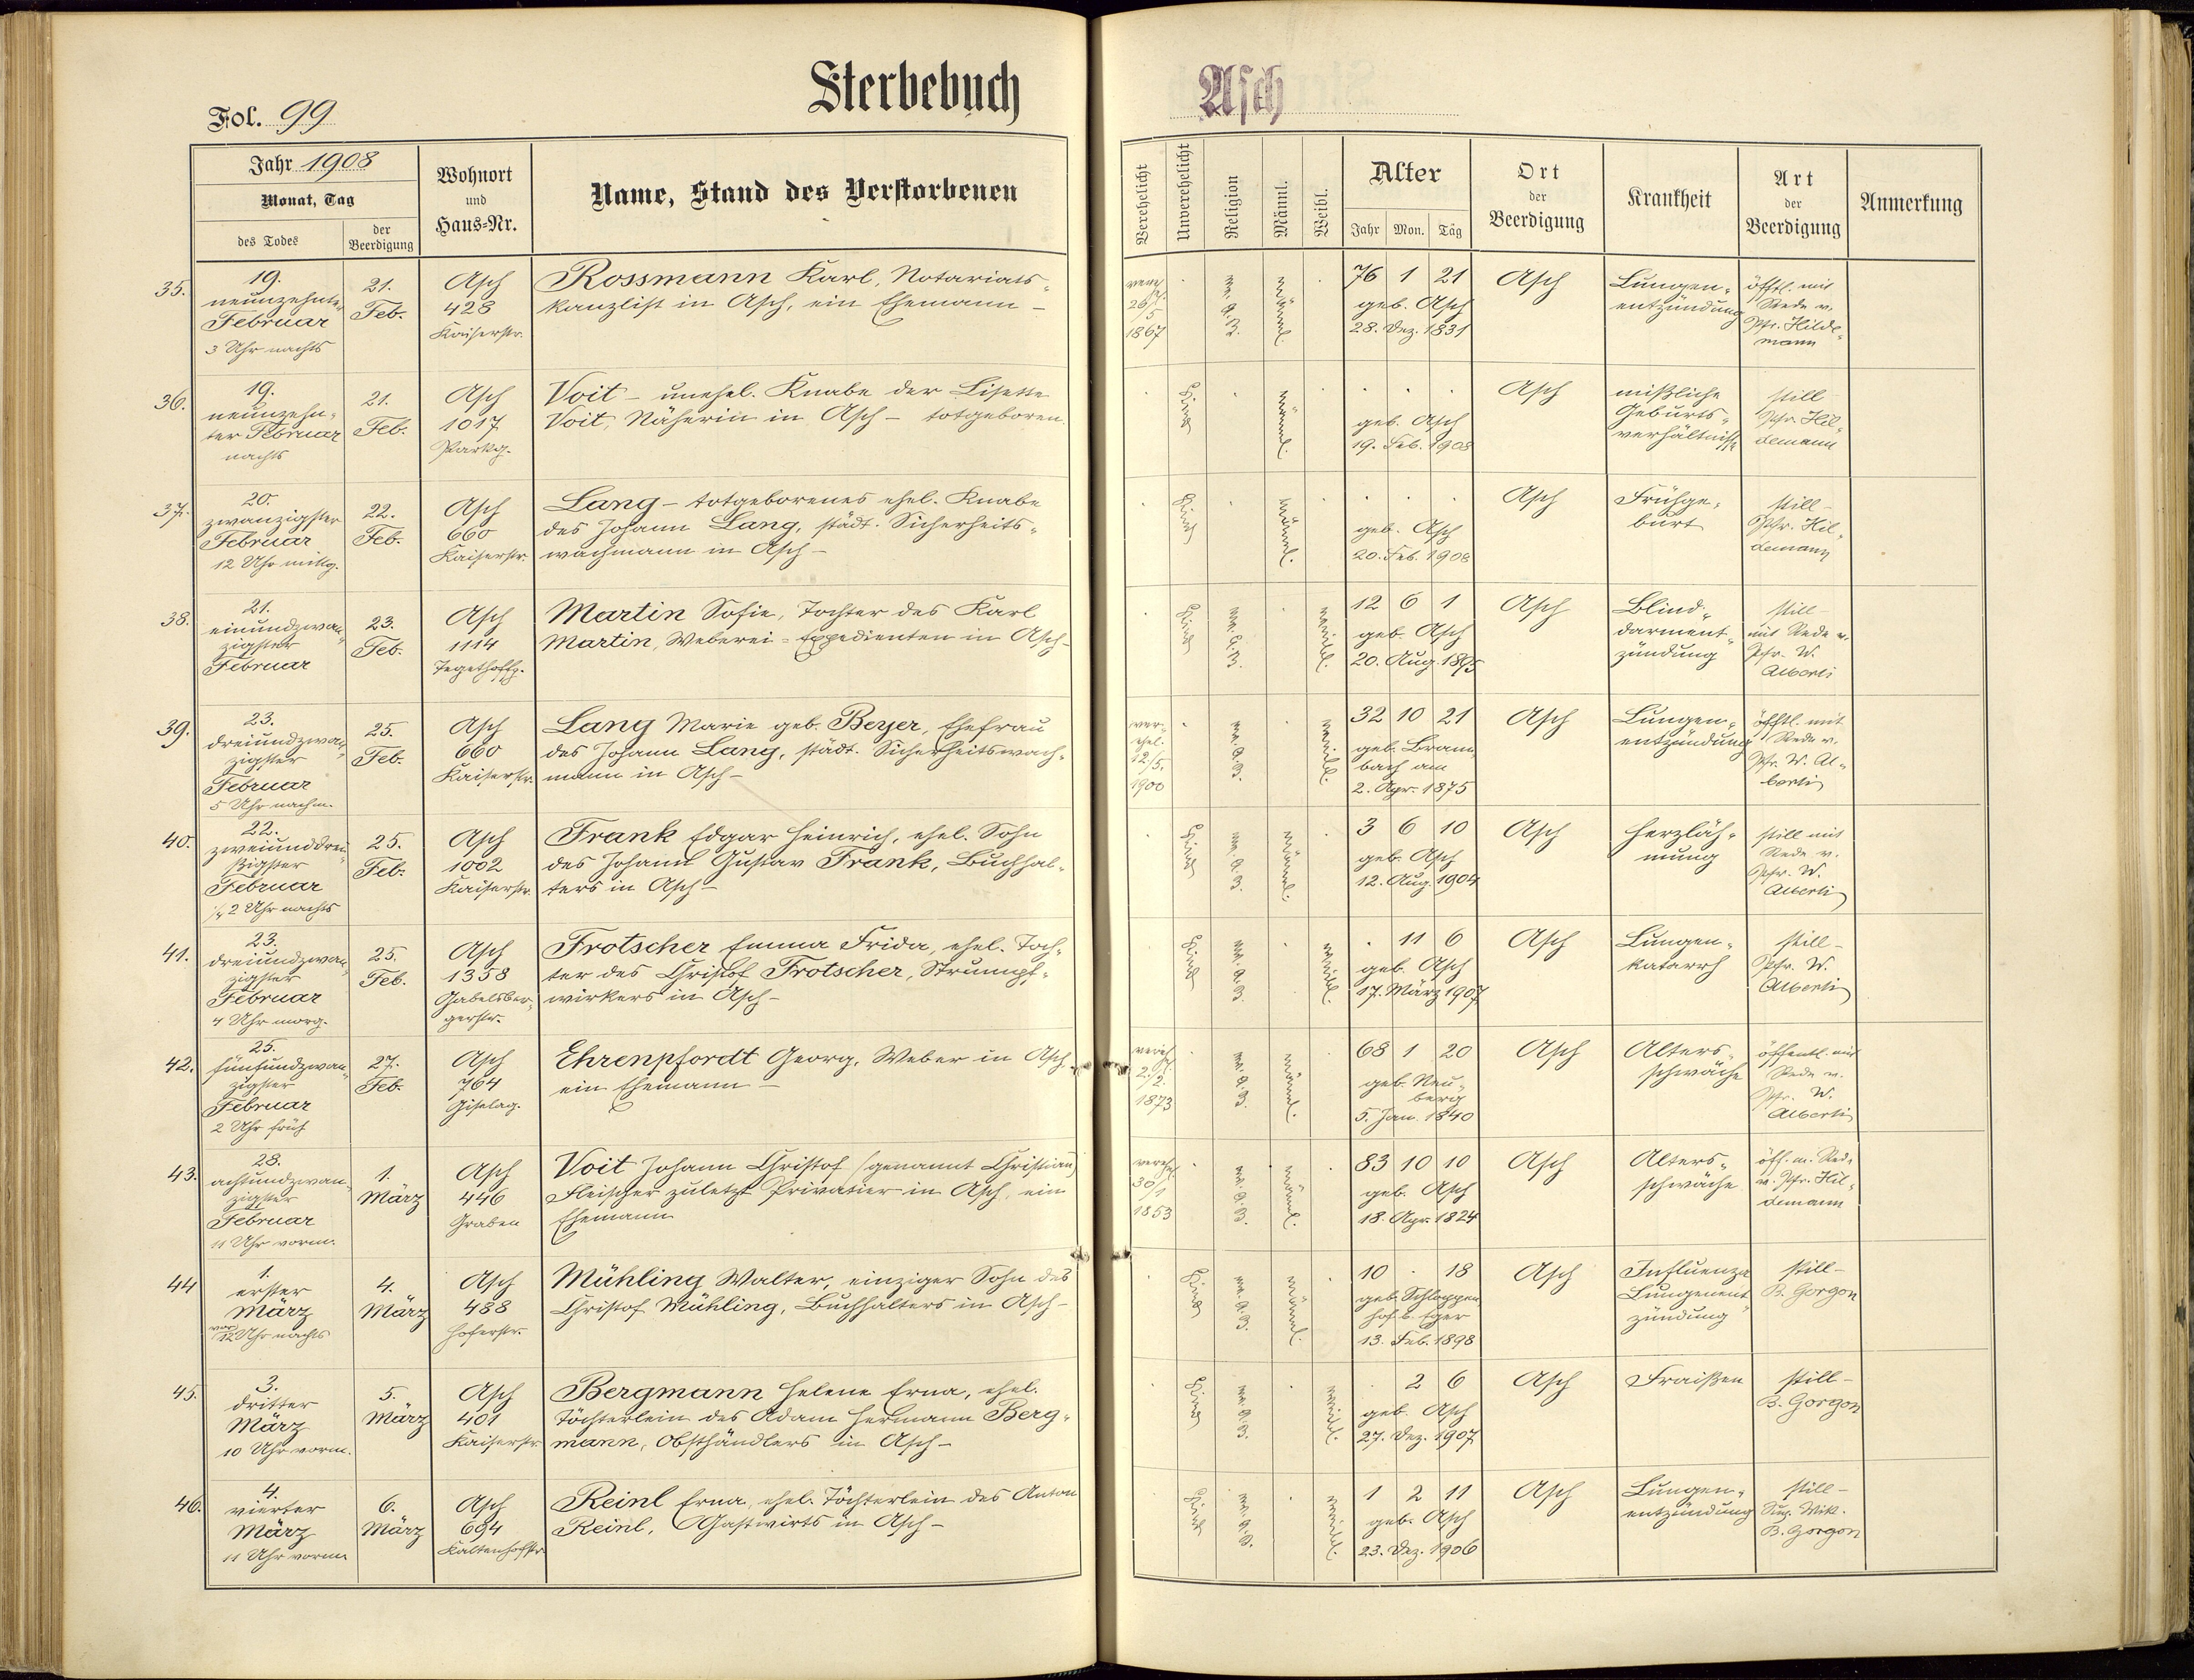 Sterbebuch
Asch
Fol. 99
Jahr 1908
Monat, Tag
des Todes
der Beerdigung
Wohnort und Haus-Nr.
Name, Stand des Verstorbenen
Verehelicht
Unverehelicht
Religion
Männl.
Weibl.
Alter
Jahr Mon. Täg
Ort der Beerdigung
Krankheit
Art der Beerdigung
Anmerkung
35.
19.
neunzehnter
Februar
3 Uhr nachts
21.
Feb.
Asch
428
Kaiserstr.
Rossmann Karl, Notariats-
kanzlist in Asch, ein Ehemann -
26/5
1867
ev. A.B.
männl.
76 1 21
geb. Asch
28. Dez. 1831
Asch
Lungen-
entzündung
öfftl. mit
Rede v.
Pfr. Hilde-
mann
36.
19.
neunzehn-
ter Februar
nachts
21.
Feb.
Asch
1017
Parkg.
Voit - unehel. Knabe der Lisette
Voit, Näherin in Asch - totgeboren.
Kind
männl.
geb. Asch
19. Feb. 1908
Asch
mißliche
Geburts-
verhältnisse
still -
Pfr. Hil-
demann
37.
20.
zwanzigster
Februar
12 Uhr mittg.
22.
Feb.
Asch
660
Kaiserstr.
Lang - totgeborenes ehel. Knabe
des Johann Lang, städt. Sicherheits-
wachmann in Asch -
Kind
männl.
geb. Asch
20. Feb. 1908
Asch
Frühge-
burt
still -
Pfr. Hil-
demann
38.
21.
einundzwan-
zigster
Februar
23.
Feb.
Asch
1114
Tegethoffg.
Martin Sofie, Tochter des Karl
Martin, Weberei-Expedienten in Asch -
Kind
ev. A.B.
weibl.
12 6 1
geb. Asch
20. Aug. 1895
Asch
Blind-
darment-
zündung
still -
mit Rede v.
Pfr. W.
Alberti
39.
23.
dreiundzwan-
zigster
Februar
5 Uhr nachm.
25.
Feb.
Asch
660
Kaiserstr.
Lang Marie geb. Beyer, Ehefrau
des Johann Lang, städt. Sicherheitswach-
mann in Asch -
ver-
ehel.
12/5.
1900
ev. A.B.
weibl.
32 10 21
geb. Bram-
bach am
2. Apr. 1875
Asch
Lungen-
entzündung
öfftl. mit
Rede v.
Pfr. W. Al-
berti
40.
22.
zweiunddrei-
ßigster
Februar
2 Uhr nachts
25.
Feb.
Asch
1002
Kaiserstr.
Frank Edgar Heinrich, ehel. Sohn
des Johann Gustav Frank, Buchhal-
ters in Asch -
Kind
ev. A.B.
männl.
3 6 10
geb. Asch
12. Aug. 1904
Asch
Herzläh-
mung
still mit
Rede v.
Pfr. W.
Alberti
41.
23.
dreiundzwan-
zigster
Februar
4 Uhr morg.
25.
Feb.
Asch
1358
Gabelsber-
gerstr.
Frotscher Emma Frida, ehel. Toch-
ter des Christof Frotscher, Strumpf-
wirkers in Asch -
Kind
ev. A.B.
weibl.
11 6
geb. Asch
17. März 1907
Asch
Lungen-
katarrh
still -
Pfr. W.
Alberti
42.
25.
fünfundzwan-
zigster
Februar
2 Uhr früh
27.
Feb.
Asch
764
Giselag.
Ehrenpfordt Georg, Weber in Asch
ein Ehemann -
verehel.
2/2.
1873
ev. A.B.
männl.
68 1 20
geb. Neu-
berg
5. Jan. 1840
Asch
Alters-
schwäche
öffentl. mit
Rede v.
Pfr. W.
Alberti
43.
28.
achtundzwan-
zigster
Februar
11 Uhr vorm.
1.
März
Asch
446
Graben
Voit Johann Christof (genannt Christian)
Fleischer zuletzt Privatier in Asch, ein
Ehemann
verehel.
30/1
1853
ev. A.B.
männl.
83 10 10
geb. Asch
18. Apr. 1824
Asch
Alters-
schwäche
öff. m. Rede
v. Pfr. Hil-
demann
44
1.
erster
März
vor 12 Uhr nachts
4.
März
Asch
488
Hoferstr.
Mühling Walter, einziger Sohn des
Christof Mühling, Buchhalters in Asch -
Kind
ev. A.B.
männl.
10 18
geb. Schloppen-
hof b. Eger
13. Feb. 1898
Asch
Influenza
Lungenent-
zündung
still -
B. Gorgon
45.
3.
dritter
März
10 Uhr vorm.
5.
März
Asch
401
Kaiserstr.
Bergmann Helene Erna, ehel.
Töchterlein des Adam Hermann Berg-
mann, Obsthändlers in Asch -
Kind
ev. A.B.
weibl.
2 6
geb. Asch
27. Dez. 1907
Asch
Fraißen
still -
B. Gorgon
46.
4.
vierter
März
11 Uhr vorm.
6.
März
Asch
694
Kaltenhofstr.
Reinl Erna, ehel. Töchterlein des Anton
Reinl, Gastwirts in Asch -
Kind
ev. A.B.
weibl.
1 2 11
geb. Asch
23. Dez. 1906
Asch
Lungen-
entzündung
still -
Vik.
B. Gorgon